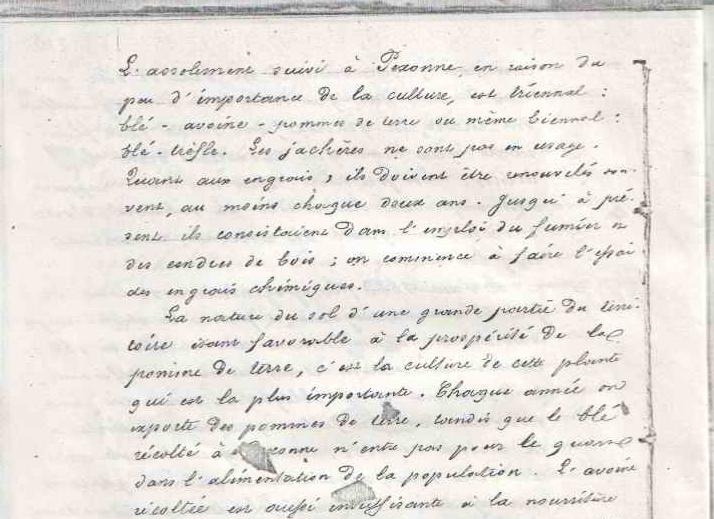 L'assolement suivi à Pexonne, en raison du
peu d'importance de la culture, est triennal :
blé - avoine - pommes de terre ou même biennal :
blé - trèfle. Les jachères ne sont pas en usage.
Quant aux engrais, ils doivent être renouvelés sou-
vent, au moins chaque deux ans. Jusqu'à pré-
sent ils consistaient dans l'emploi du fumier
des cendres de bois ; on commence à faire l'essai
des engrais chimiques.
La nature du sol d'une grande partie du terri-
toire étant favorable à la prospérité de la
pomme de terre, c'est la culture de cette plante
qui est la plus importante. Chaque année on
exporte des pommes de terre, tandis que le blé
récolté à Pexonne n'entre pas pour le quart
dans l'alimentation de la population. L'avoine
récoltée est aussi insuffisante à la nourriture